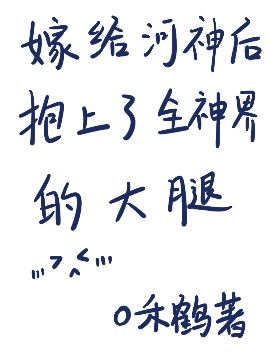 嫁给河神后
抱上了全神界
的大腿
,,,>^<,,,
O禾鹤著